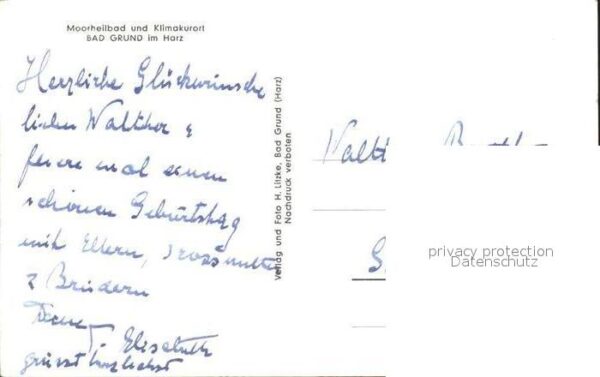 Moorheilbad und Klimakurort
BAD GRUND im Harz
Herzliche Glückwünsche
lieber Walther &
feiere mal einen
schönen Geburtstag
mit Eltern, Grossmutter
2 Brüdern
Elisabeth
grüsst herzlichst
Verlag und Foto H. Litzke, Bad Grund (Harz)
Nachdruck verboten
privacy protection
Datenschutz